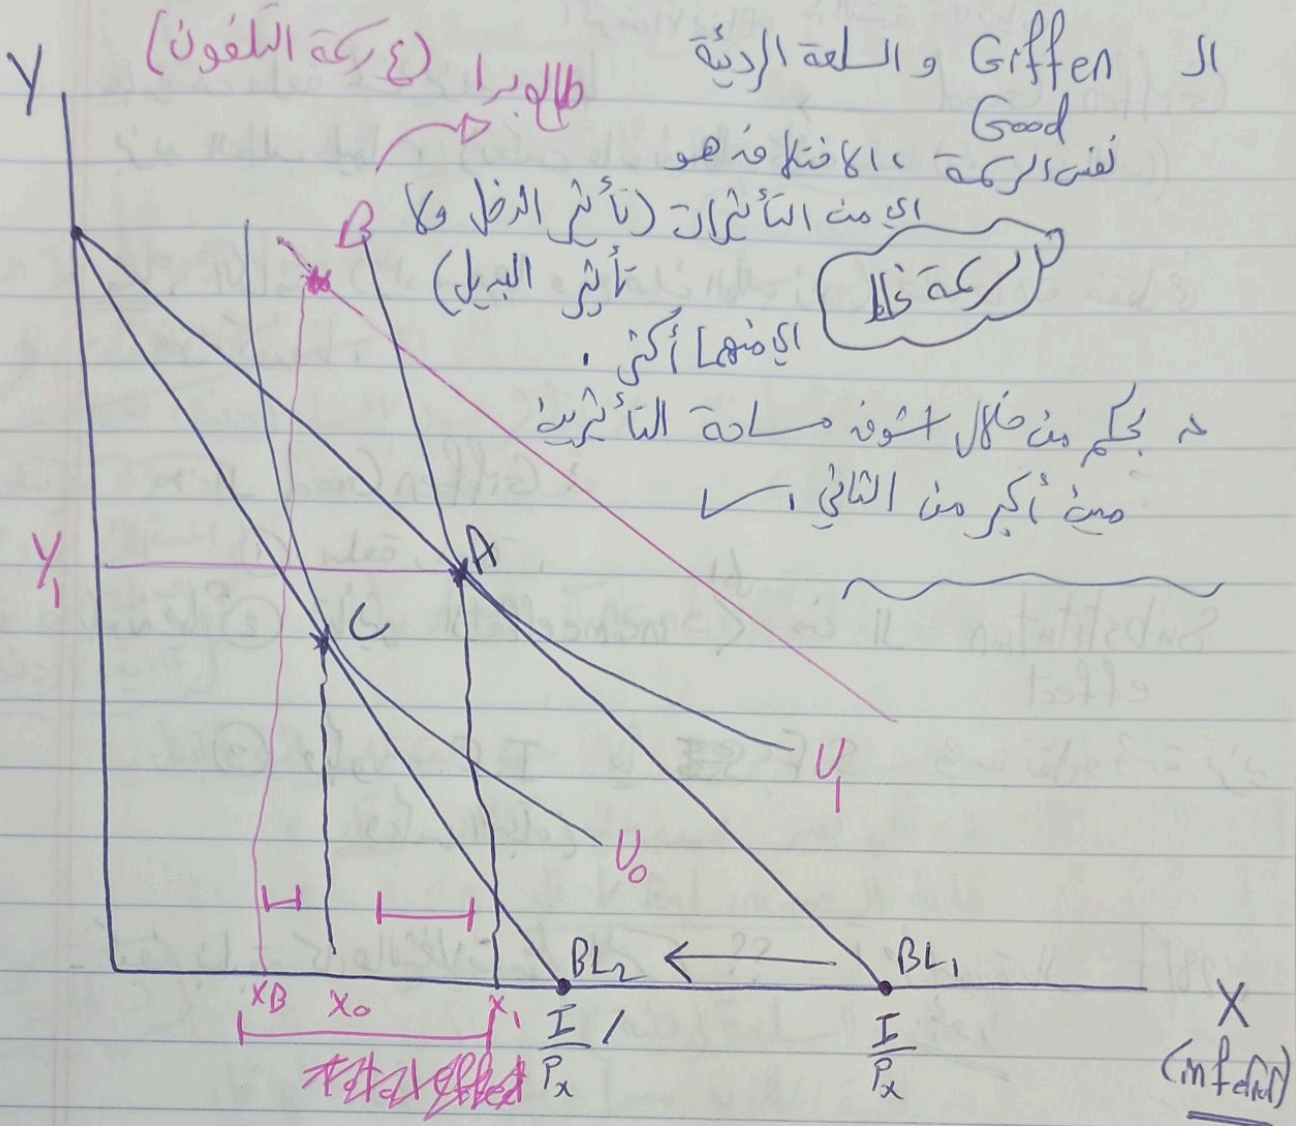 (ع رسمة التلفون)
طالع برا
الـ Giffen والسلعة الرديئة
Good
نفس الرسمة، الاختلاف هو
اي من التأثيرات (تأثير الدخل ولا
تأثير البديل)
اي منهما أكثر.
الرسمة غلط
بحكم من خلال اشوف مساحة التأثيرين
مين أكبر من الثاني
Y
B
A
Y1
C
U1
U0
BL2
BL1
XB X0 X1
I/Px
I/Px
X
(inferior)
Total effect